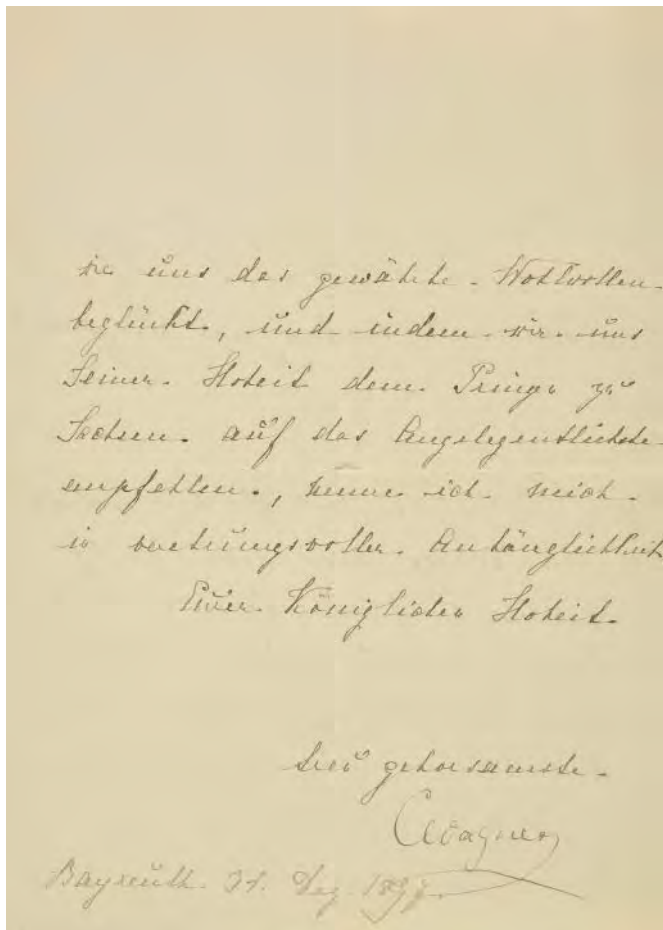 wie uns das gewährte Wohlwollen
beglückt, und indem wir uns
Seiner Hoheit dem Prinzen zu
Sachsen auf das Angelegentlichste
empfehlen, nenne ich mich
in verehrungsvoller Anhänglichkeit
Euer Königlichen Hoheit
treu gehorsamste
CWagner
Bayreuth 31. Dez. 1897.